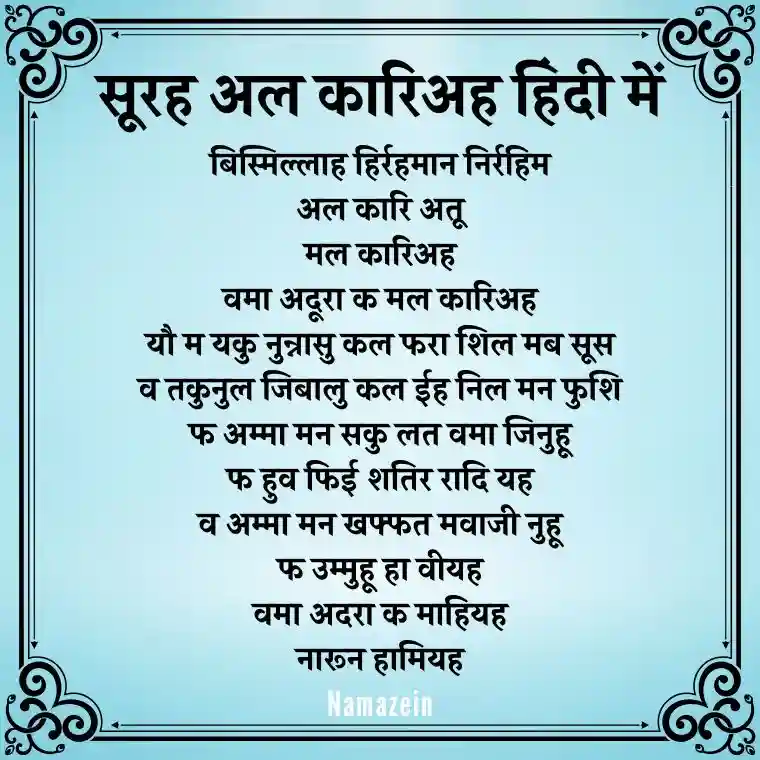 सूरह अल कारिअह हिंदी में
बिस्मिल्लाह हिर्रहमान निर्रहिम
अल कारि अतू
मल कारिअह
वमा अदूरा क मल कारिअह
यौ म यकु नुन्नासु कल फरा शिल मब सूस
व तकुनुल जिबालु कल ईह निल मन फुशि
फ अम्मा मन सकु लत वमा जिनुहू
फ हुव फिई शतिर रादि यह
व अम्मा मन खफ्फत मवाजी नुहू
फ उम्मुहू हा वीयह
वमा अदरा क माहियह
नारून हामियह
Namazein